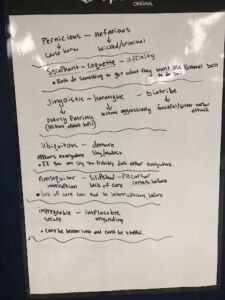 ORIGINAL
Pernicious — nefarious
cause harm wicked/criminal
Sycophant — coquette — affinity
• Both do something to get what they want
Jingoistic — harangue — Diatribe
overly Patriotic lecture aggressively forceful/bitter verbal attack
(lecture about
Ubiquitous — demure
Appears everywhere shy/modest
• If you are shy you Probably dont appear everywhere.
Nonsequitor — slipshod — precursor
interruption lack of care comes before
• lack of care can lead to interruptions before
impregnable — implacable
secure unyielding
• cant be broken into and cant be